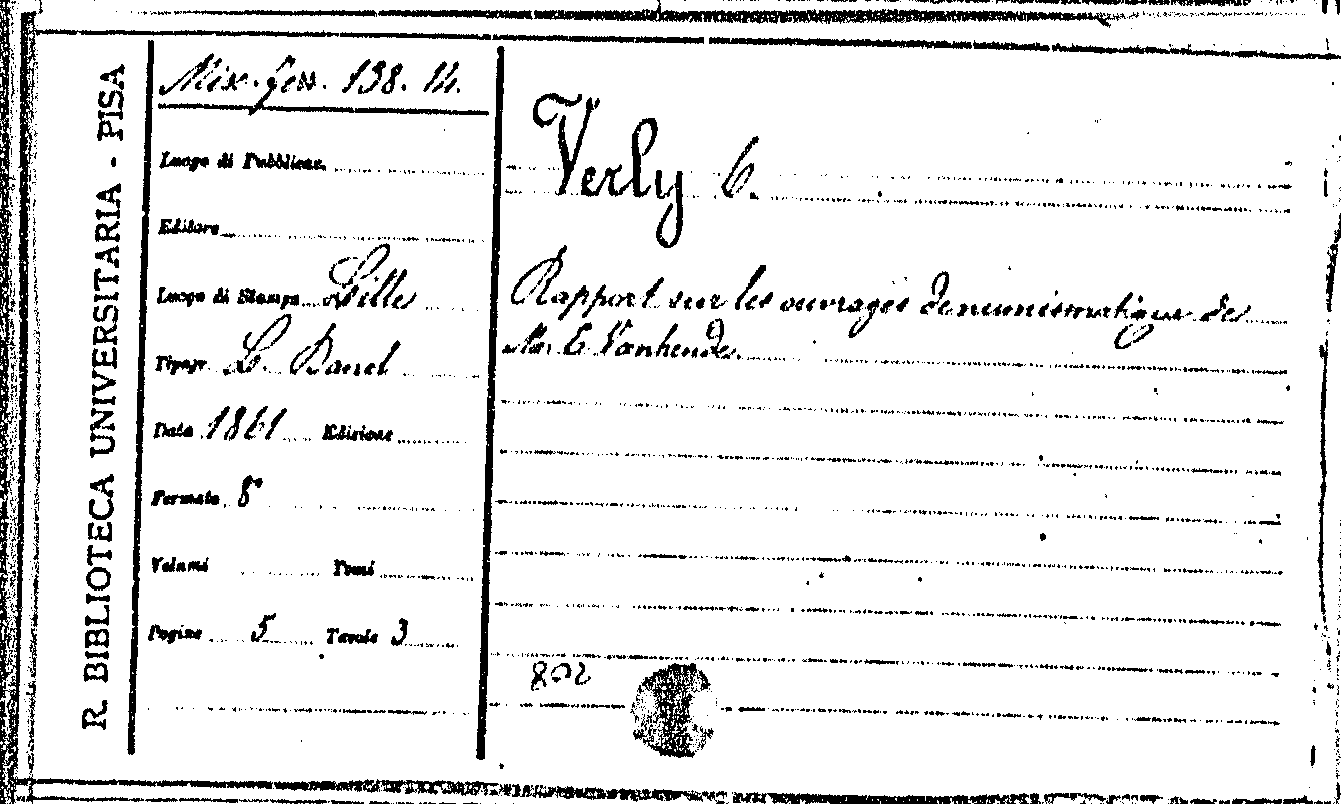 R. BIBLIOTECA UNIVERSITARIA - PISA
Misc. 138. 14.
Luogo di Pubblicaz.
Editore
Luogo di Stampa Lille
Tipogr. L. Danel
Data 1861 Edizione
Formato 8°
Volumi Tomi
Pagine 5 Tavole 3
Verly C.
Rapport sur les ouvrages de numismatique de
Mr. E Vanhende.
802